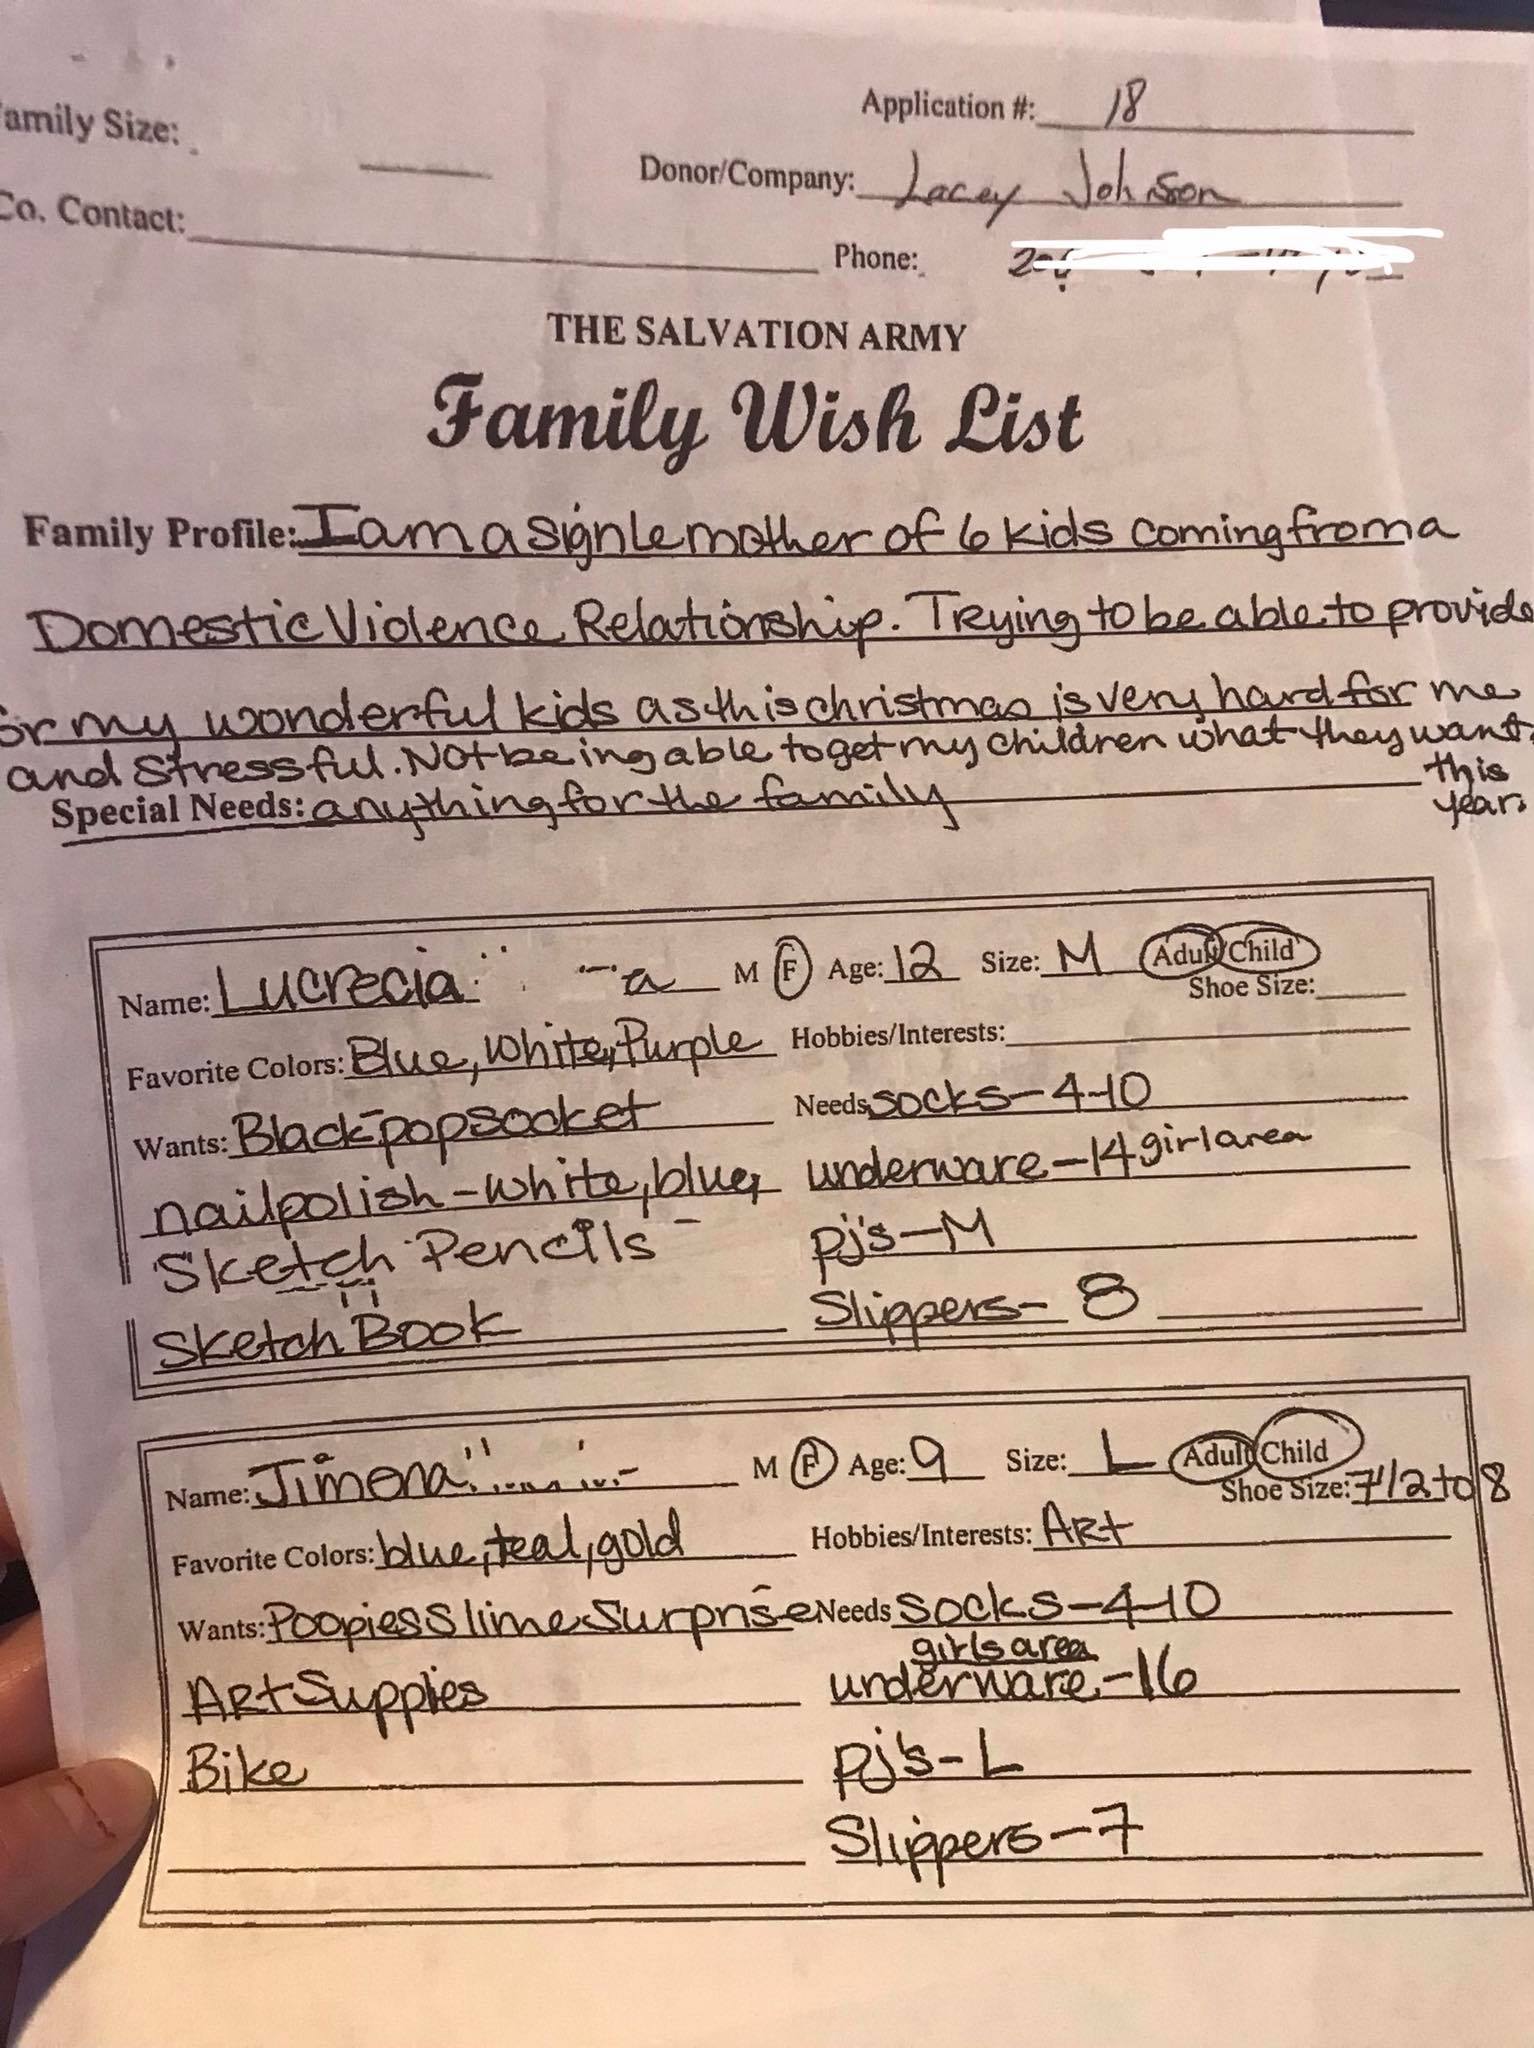 Family Size:
Application #: 18
Donor/Company: Lacey Johnson
Co. Contact:
Phone:
THE SALVATION ARMY
Family Wish List
Family Profile: I am a signle mother of 6 kids coming from a
Domestic Violence Relationship. Trying to be able to provide
for my wonderful kids as this christmas is very hard for me
and stressful. Not being able to get my children what they want
this
year.
Special Needs: anything for the family
Name: Lucrecia M F Age: 12 Size: M Adult Child
Shoe Size:
Favorite Colors: Blue, White, Purple Hobbies/Interests:
Wants: Black-popsocket Needs socks-4-10
nailpolish-white, blue, underware-14 girl area
Sketch Pencils pj's-M
Sketch Book Slippers- 8
Name: Jimena M F Age: 9 Size: L Adult Child
Shoe Size: 7 1/2 to 8
Favorite Colors: blue, teal, gold Hobbies/Interests: Art
Wants: Poopies Slime Surprise Needs socks-4-10
girls area
Art Supplies underware-16
Bike pj's-L
Slippers-7